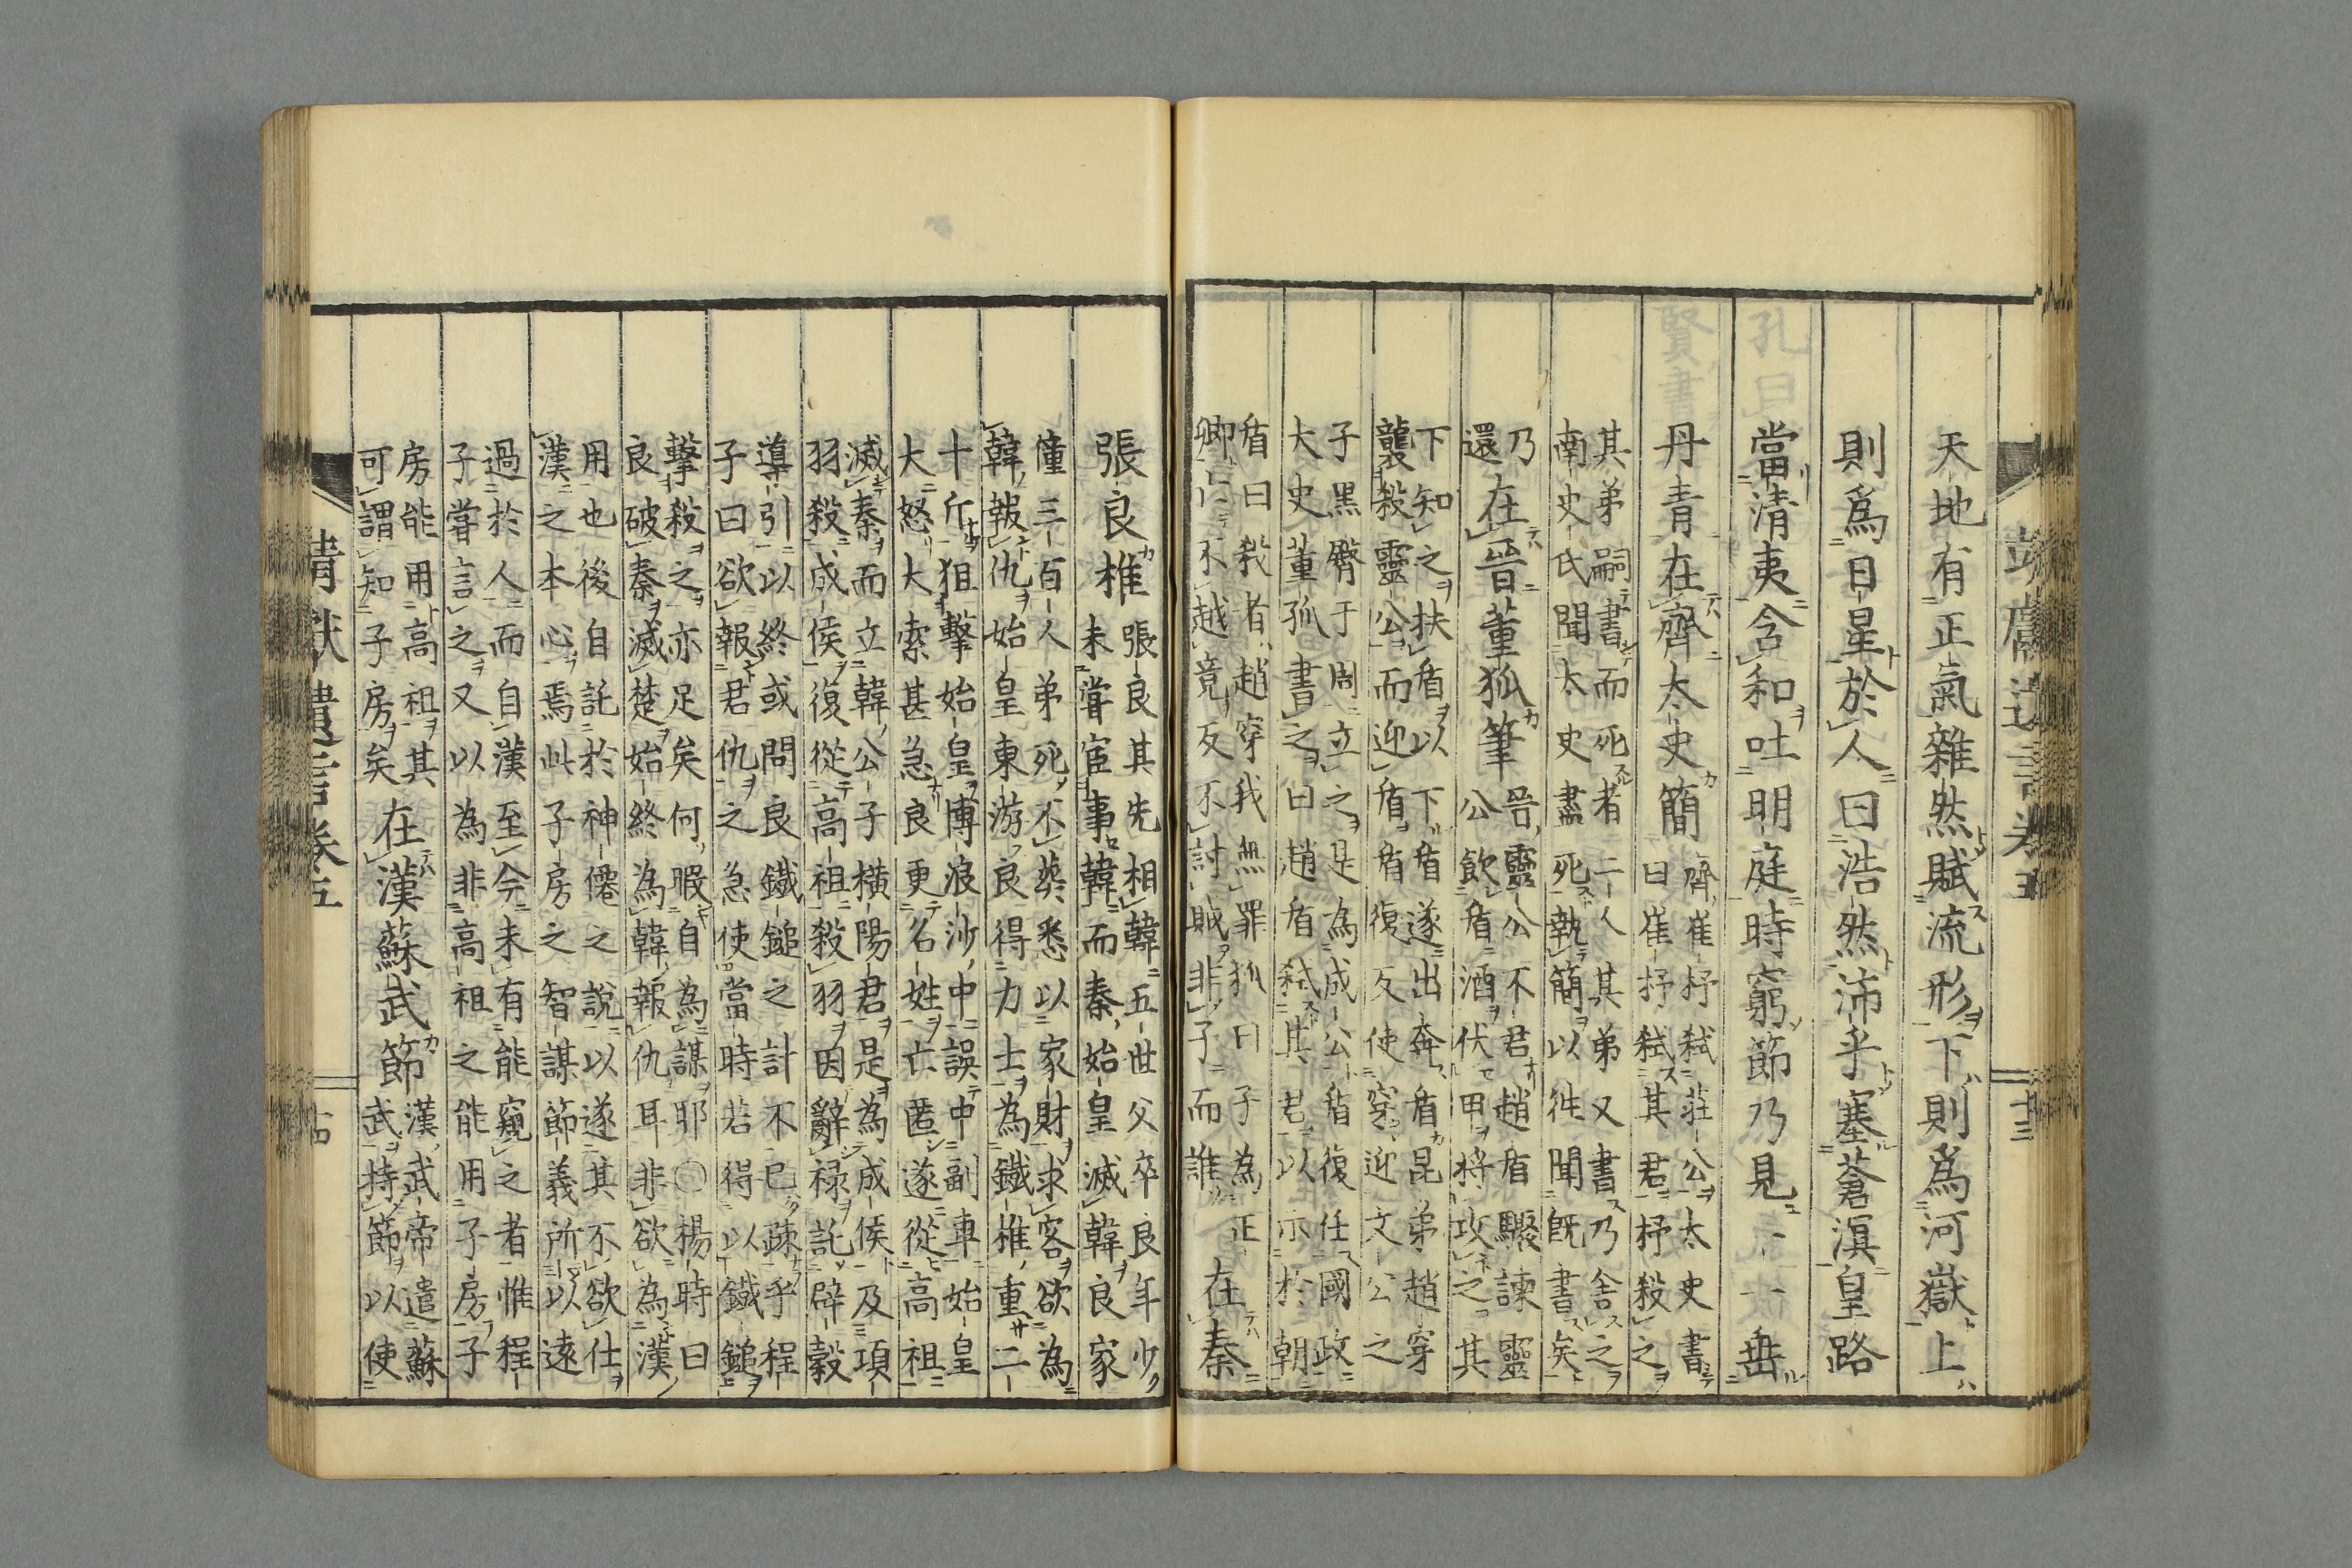 天地有正氣雜然賦流形下則爲河嶽上
則爲日星於人曰浩然沛乎塞蒼溟皇路
當清夷含和吐明庭時窮節乃見一一垂
丹青在齊太史簡
齊崔杼弑莊公太史書
曰崔杼弑其君杼殺之
其弟嗣書而死者二人其弟又書乃舍之
南史氏聞太史盡死執簡以徃聞既書矣
乃
還
在晉董狐筆
晉靈公不君趙盾驟諫靈
公飲盾酒伏甲将攻之其
下知之扶盾以下盾遂出奔盾昆弟趙穿
襲殺靈公而迎盾盾復反使穿迎文公之
子黑臀于周立之是為成公盾復任國政
大史董狐書之曰趙盾弑其君以示於朝
盾曰殺者趙穿我無罪狐曰子為正
卿亡不越竟反不討賊非子而誰
在秦
張良椎
張良其先相韓五世父卒良年少
未嘗宦事韓而秦始皇滅韓良家
僮三百人弟死不葬悉以家財求客欲為
韓報仇始皇東游良得力士為鐵椎重二
十斤狙擊始皇博浪沙中誤中副車始皇
大怒大索甚急良更名姓亡匿遂從高祖
滅秦而立韓公子橫陽君是為成侯及項
羽殺成侯復從高祖殺羽因辭祿託辟穀
導引以終或問良鐵鎚之計不已疎乎程
子曰欲報君仇之急使當時若得以鐵鎚
擊殺之亦足矣何暇自為謀耶○楊時曰
良破秦滅楚始終為韓報仇耳非欲為漢
用也後自託於神僊之說以遂其不欲仕
漢之本心焉此子房之智謀節義所以遠
過於人而自漢至今未有能窺之者惟程
子嘗言之又以為非高祖之能用子房子
房能用高祖其
可謂知子房矣
在漢蘇武節
漢武帝遣蘇
武持節以使
靖獻遺言卷五
十三
十四